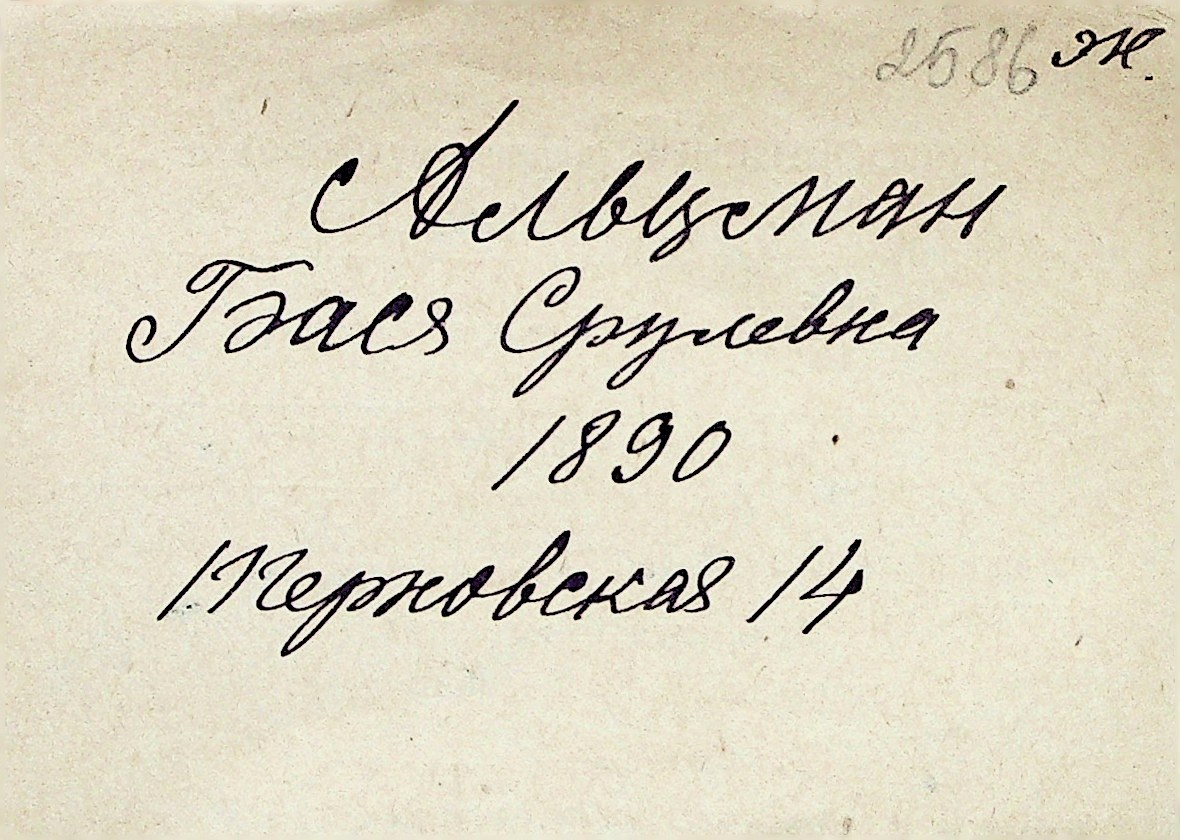 2586 эк.
Альцман
Бася Срулевна
1890
Перновская 14